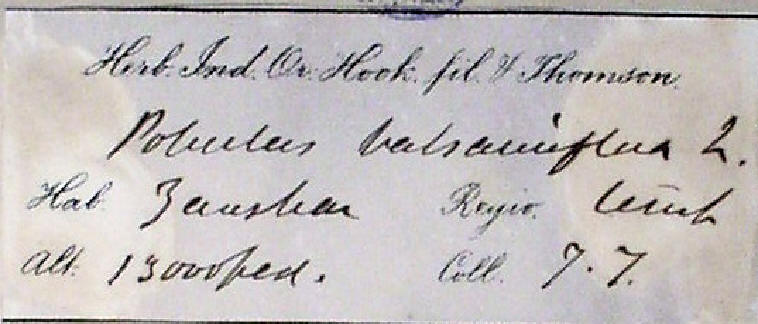 Herb. Ind. Or. Hook. fil. & Thomson.
Populus balsamiflua L.
Hab. Zanskar Regio. temp
Alt. 13000 ped. Coll. T.T.